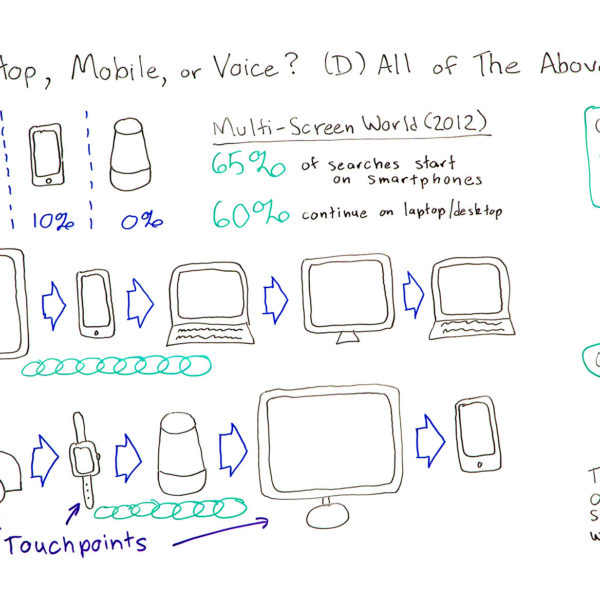 top, Mobile, or Voice? (D) All of The Above
Multi-Screen World (2012)
65% of searches start
on smartphones
60% continue on laptop/desktop
10% 0%
Touchpoints